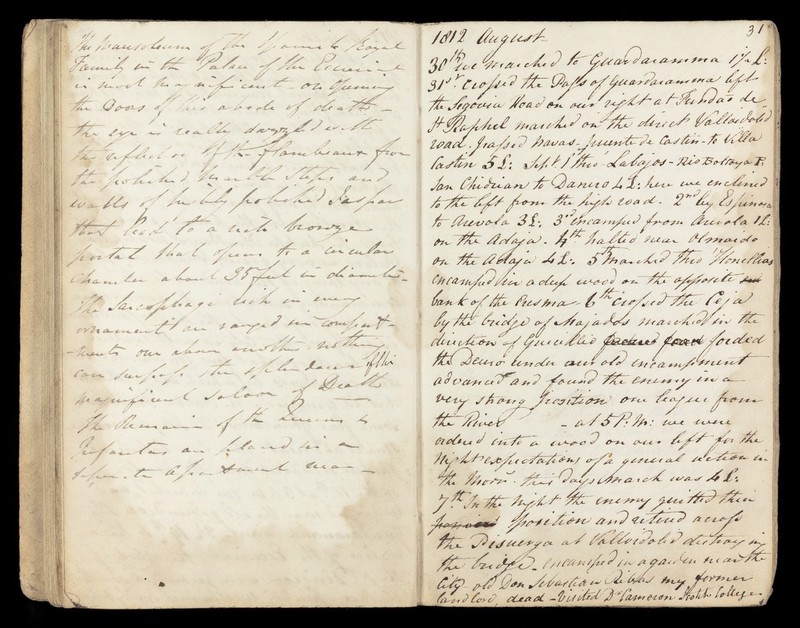 The Mausoleum of the Spanish Royal
Family in the Palace of the Escurial
is most magnificent - on opening
the doors of this abode of death -
the eye is really dazzled with
the reflection of the flambeaux from
the polished marble steps and
walls of highly polished Jaspar
that lead to a rich bronze
portal that opens to a circular
chamber about 35 feet in diameter -
The Sarcophagi rich in every
ornament are ranged in compart-
-ments one above another. nothing
can surpass the splendour of this
magnificent Saloon of Death
The Remains of the Queens &
Infantas are placed in a
separate apartment near -
31
1812 August
30th we marched to Guardaramma 1½ L:
31st crossed the Pass of Guardaramma left
the Segovia Road on our right at Fundas de
St Raphel marched on the direct Valladolid
road. passed Navas - puente de Castin - to Villa
Castin 5 L: Sept 1st thro Labajos - Rio
San Chidrian to Danero 4 L: here we enclined
to the left from the high road. 2nd by Espinosa
to Arevola 3 L: 3rd encamped from Arevola 1 L:
on the Adaja. 4th halted near Olmaido
on the Adaja 4 L: 5th marched thro
encamped in a deep wood on the opposite
bank of the Cresma - 6th crossed the Ceja
by the bridge of Majados marched in the
direction of forded
the Deuro under our old encampment
advanced and found the enemy in a
very strong position one league from
the River - at 5 P: M: we were
ordered into a wood on our left for the
Night expectations of a general action in
the Morng. this days march was 4 L:
7th In the Night the enemy quitted their
position and retired across
the Pisuerga at Valladolid destroying
the bridge. encamped in a garden near the
City old Don Sebastian Ribas my former
landlord, dead - Visited Dr Cameron Scotch College.